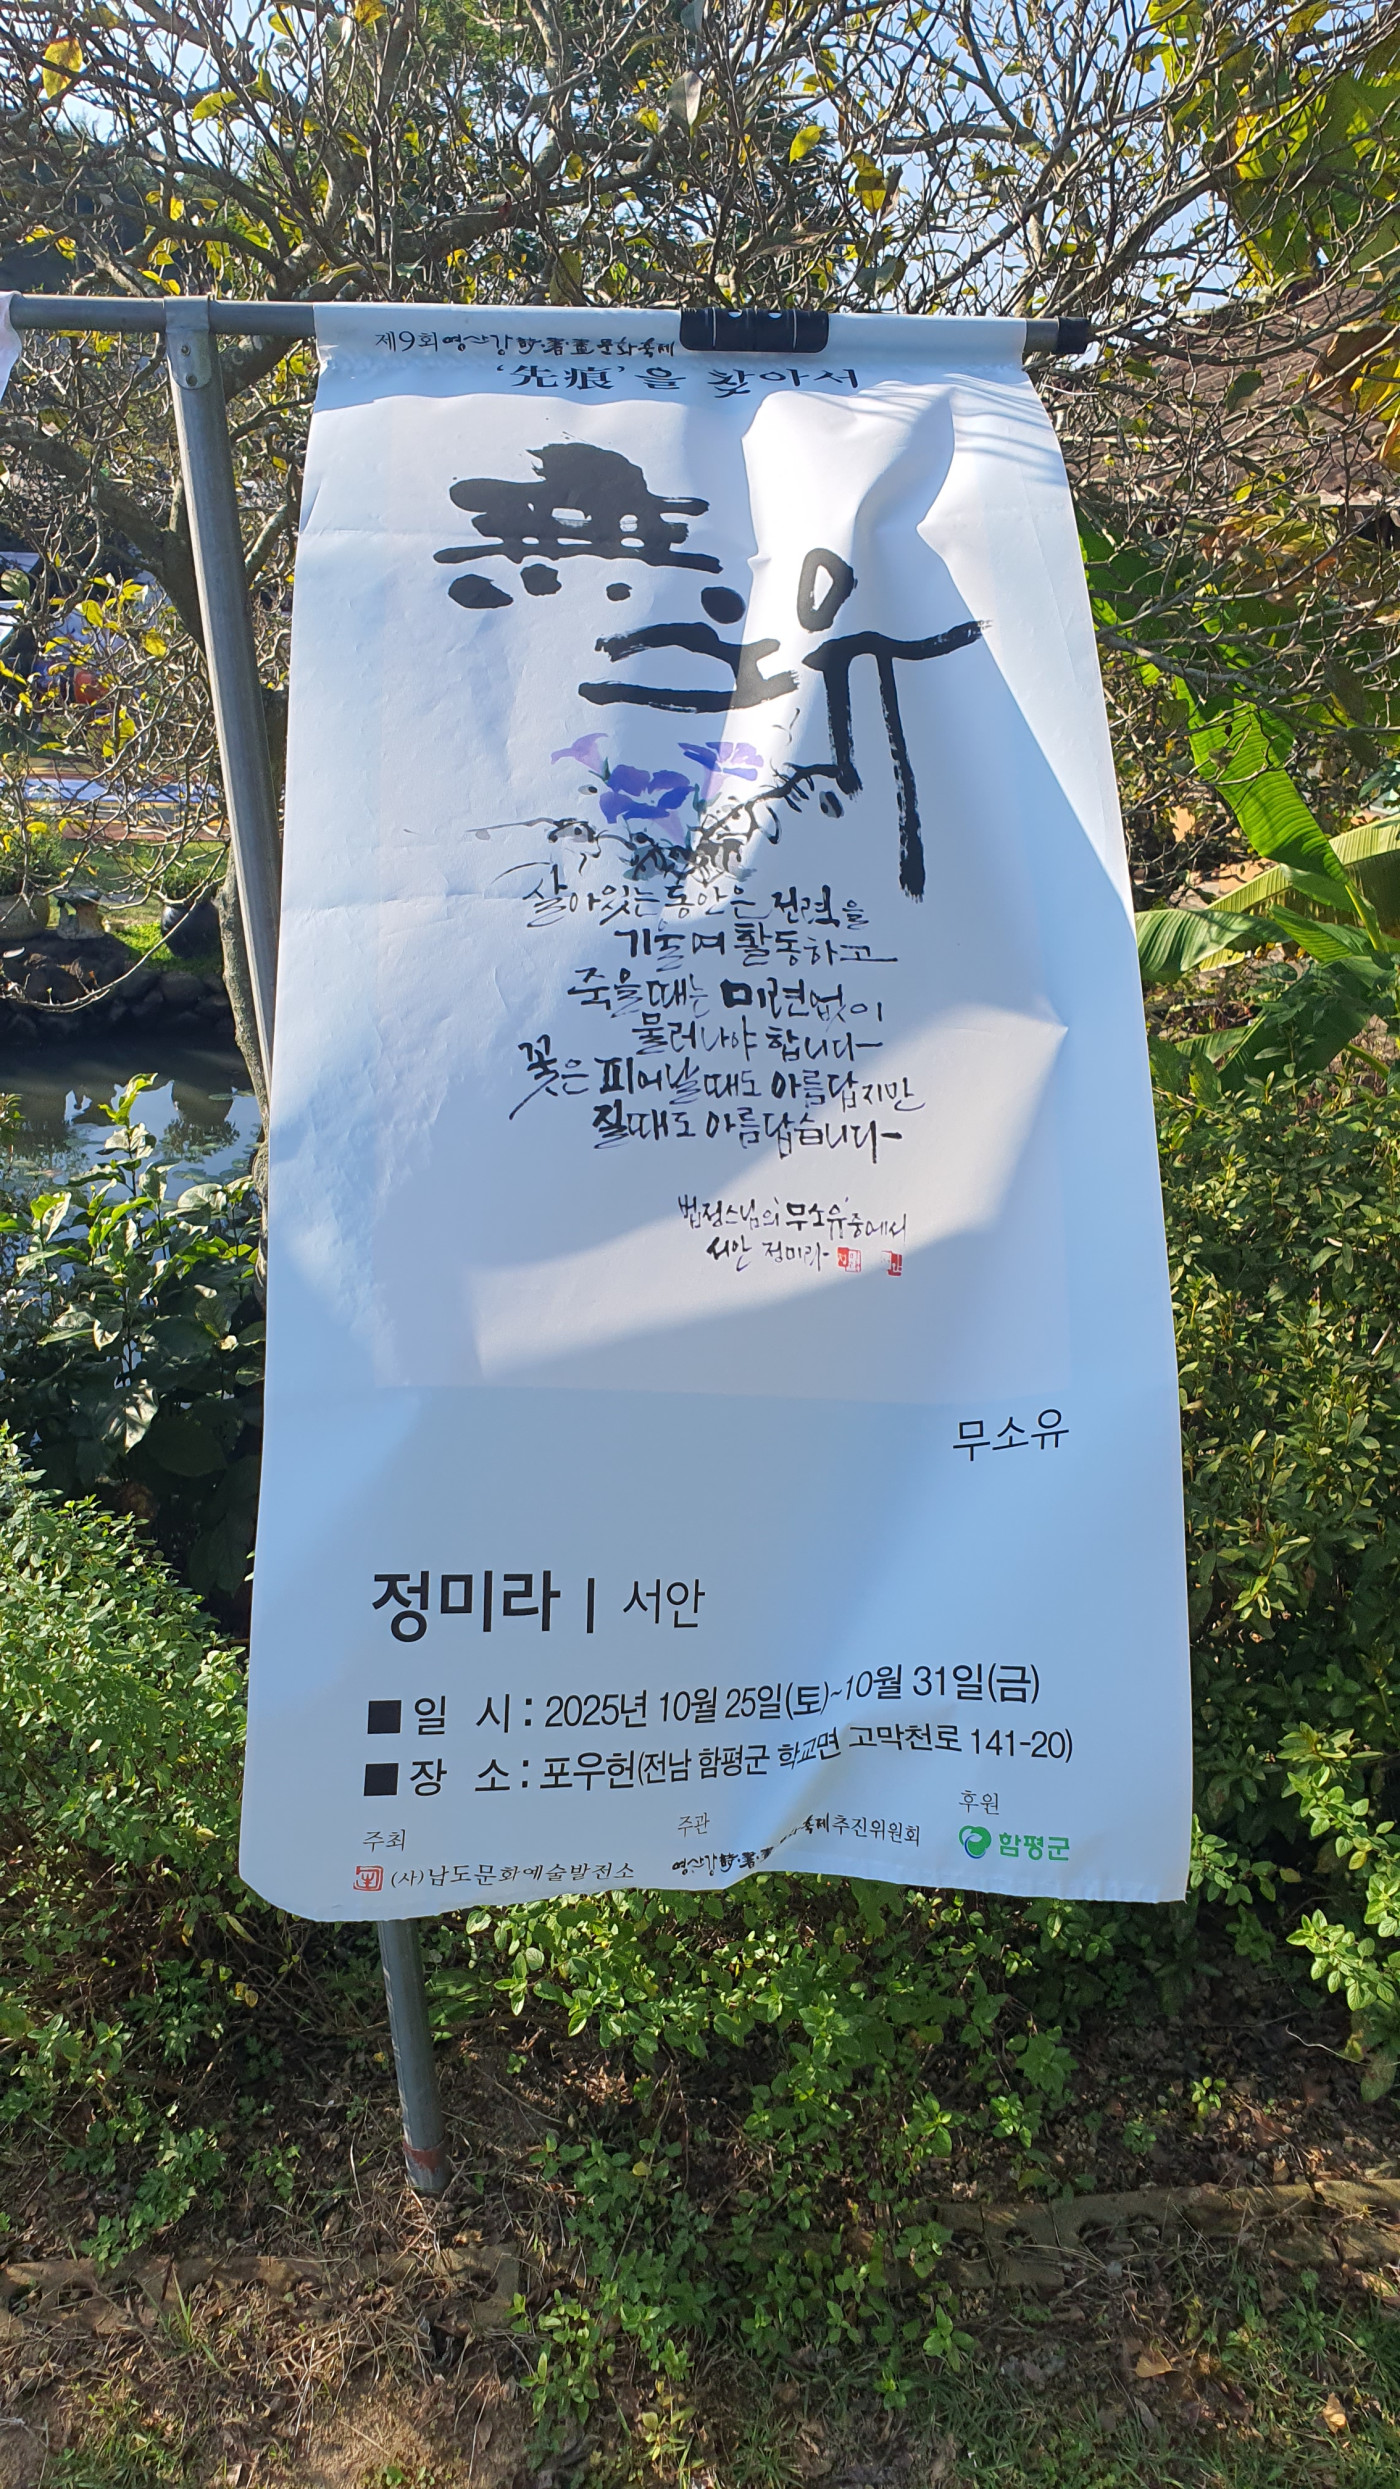 제9회 영산강 詩·書·畫 문화축제
'先痕'을 찾아서
無
소유
살아있는 동안은 전력을
기울여 활동하고
죽을때는 미련없이
물러나야 합니다
꽃은 피어날때도 아름답지만
질때도 아름답습니다
법정스님의 '무소유'중에서
서안 정미라
무소유
정미라 | 서안
■ 일 시 : 2025년 10월 25일(토)~10월 31일(금)
■ 장 소 : 포우헌(전남 함평군 학교면 고막천로 141-20)
주최
(사)남도문화예술발전소
주관
영산강 詩·書·畫 문화축제 추진위원회
후원
함평군